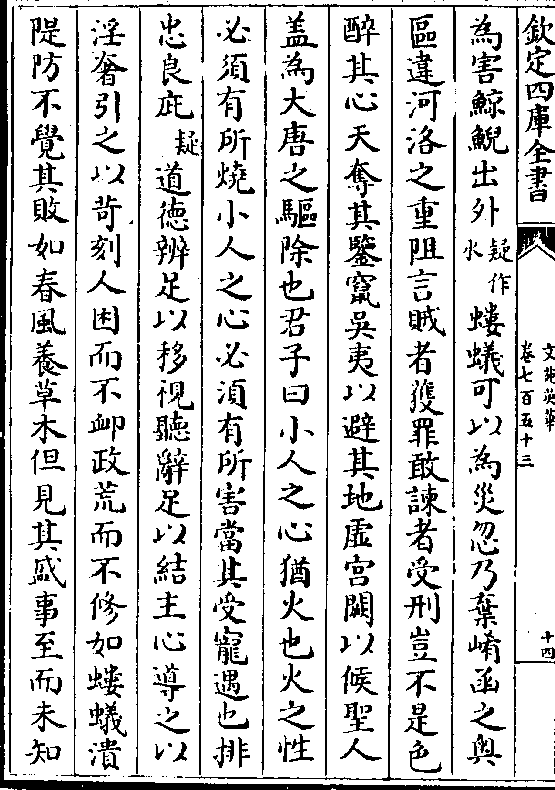 欽定四庫全書
文苑英華
卷七百五十三
十四
為害鯨鯢出外疑作水螻蟻可以為災忽乃棄崤函之奥
區違河洛之重阻言賊者獲罪敢諫者受刑豈不是色
醉其心天奪其鑒竄吳夷以避其地虚宫闕以候聖人
盖為大唐之驅除也君子曰小人之心猶火也火之性
必須有所燒小人之心必須有所害當其受寵遇也排
忠良庇疑道德辨足以移視聽辭足以結主心導之以
淫奢引之以苛刻人困而不卹政荒而不修如螻蟻潰
隄防不覺其敗如春風養草木但見其盛事至而未知